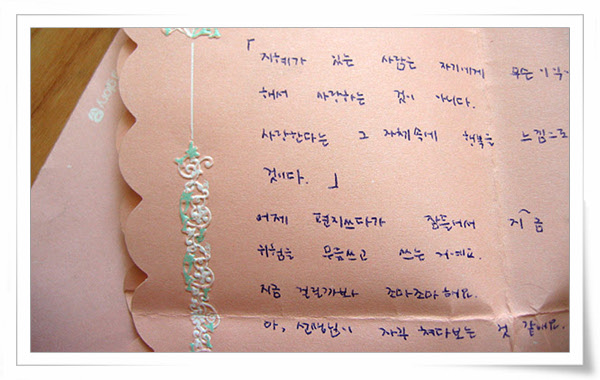 「지혜가 있는 사람은 자기에게
해서 사랑하는 것이 아니다.
사랑한다는 그 자체속에 행복을 느낌으로
것이다. 」
어제 편지쓰다가 잠들어서 지금
위험을 무릅쓰고 쓰는 거예요.
지금 걸릴까봐 조마조마 해요.
아, 선생님이 자꾸 쳐다보는 것 같애요.